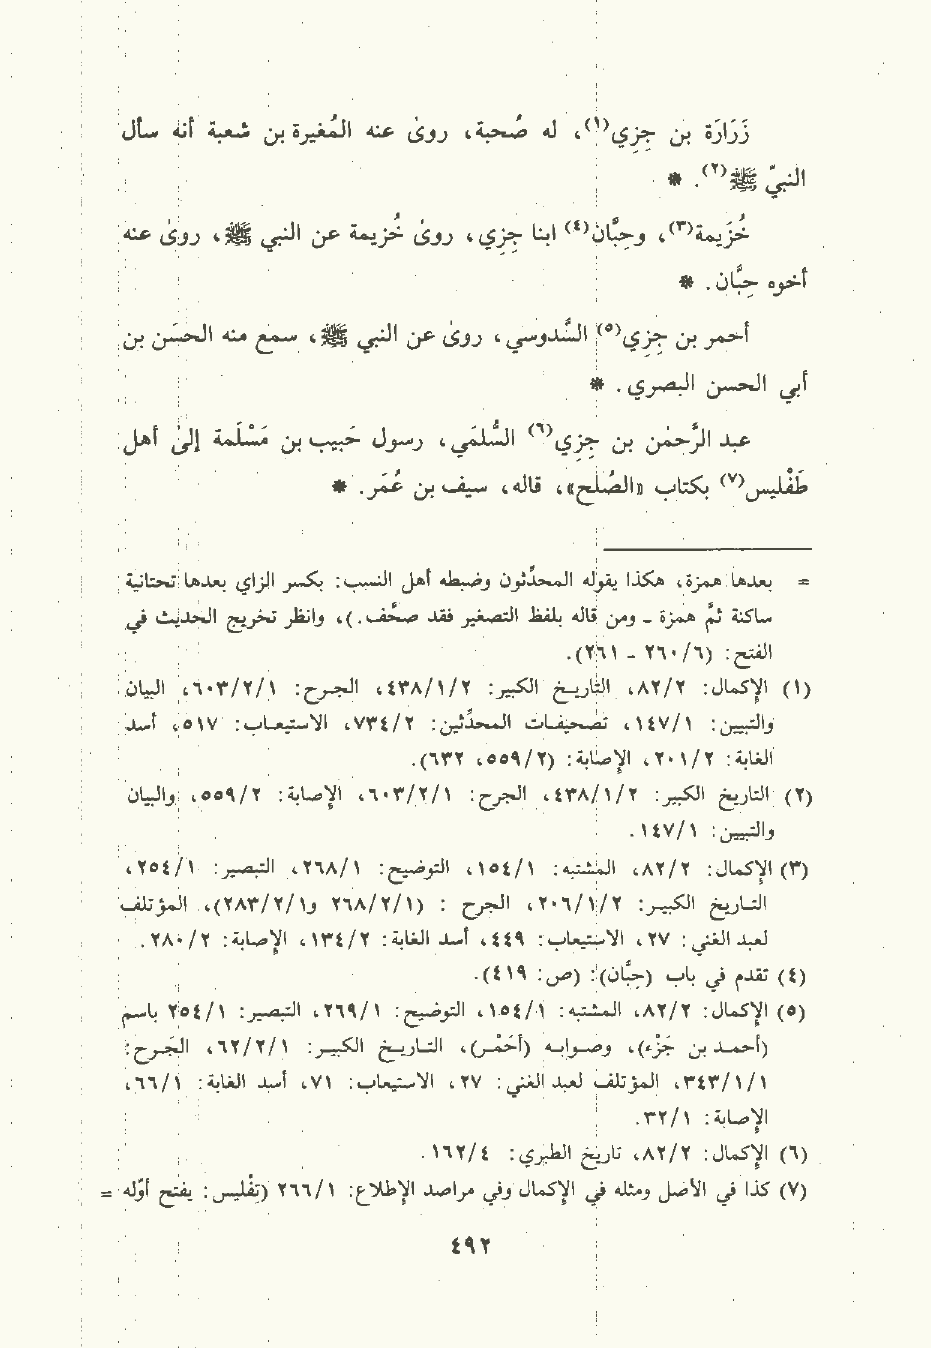 زَرَارَة بن جِزِي(١)، له صُحبة، روىٰ عنه المُغيرة بن شعبة أنه سأل
النبيّ ﷺ(٢). *
خُزَيمة(٣)، وحِبَّان(٤) ابنا جِزِي، روىٰ خُزيمة عن النبي ﷺ، روىٰ عنه
أخوه حِبَّان. *
أحمر بن جِزِي(٥) السَّدوسي، روىٰ عن النبي ﷺ، سمع منه الحسَن بن
أبي الحسن البصري. *
عبد الرَّحمٰن بن جِزِي(٦) السُّلمَي، رسول حَبيب بن مَسْلَمة إلىٰ أهل
طَفْليس(٧) بكتاب «الصُلح»، قاله، سيف بن عُمَر. *
= بعدها همزة، هكذا يقوله المحدِّثون وضبطه أهل النسب: بكسر الزاي بعدها تحتانية
ساكنة ثمَّ همزة ـ ومن قاله بلفظ التصغير فقد صحَّف.)، وانظر تخريج الحديث في
الفتح: (٢٦٠/٦ - ٢٦١).
(١) الإكمال: ٨٢/٢، التاريـخ الكبير: ٤٣٨/١/٢، الجـرح: ٦٠٣/٢/١، البيان
والتبيين: ١٤٧/١، تصحيفـات المحدِّثين: ٧٣٤/٢، الاستيعـاب: ٥١٧، أسد
الغابة: ٢٠١/٢، الإصابة: (٥٥٩/٢، ٦٣٢).
(٢) التاريخ الكبير: ٤٣٨/١/٢، الجرح: ٦٠٣/٢/١، الإصابة: ٥٥٩/٢، والبيان
والتبيين: ١٤٧/١.
(٣) الإكمال: ٨٢/٢، المشتبه: ١٥٤/١، التوضيح: ٢٦٨/١، التبصير: ٢٥٤/١،
التـاريخ الكبيـر: ٢٠٦/١/٢، الجرح : (٢٦٨/٢/١ و٢٨٣/٢/١)، المؤتلف
لعبد الغني: ٢٧، الاستيعاب: ٤٤٩، أسد الغابة: ١٣٤/٢، الإصابة: ٢٨٠/٢.
(٤) تقدم في باب (حِبَّان): (ص: ٤١٩).
(٥) الإكمال: ٨٢/٢، المشتبه: ١٥٤/١، التوضيح: ٢٦٩/١، التبصير: ٢٥٤/١ باسم
(أحمـد بن جَزْء)، وصـوابـه (أحَمْـر)، التـاريـخ الكبيـر: ٦٢/٢/١، الجَـرح:
٣٤٣/١/١، المؤتلف لعبد الغني: ٢٧، الاستيعاب: ٧١، أسد الغابة: ٦٦/١،
الإصابة: ٣٢/١.
(٦) الإكمال: ٨٢/٢، تاريخ الطبري: ١٦٢/٤.
(٧) كذا في الأصل ومثله في الإكمال وفي مراصد الإطلاع: ٢٦٦/١ (تِفْليس: يفتح أوّله =
٤٩٢